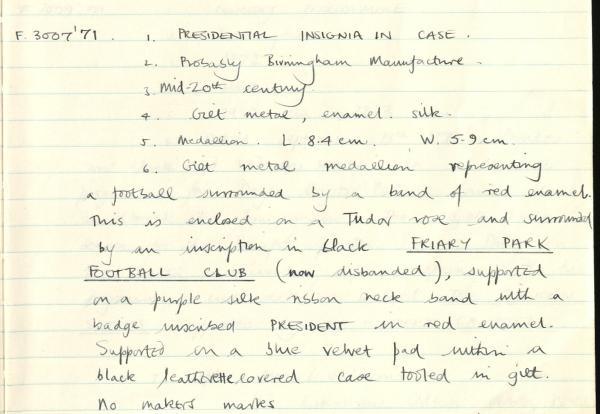 F. 3007'71. 1. PRESIDENTIAL INSIGNIA IN CASE.
2. Probably Birmingham Manufacture.
3. Mid-20th century.
4. Gilt metal, enamel. silk.
5. Medallion. L. 8.4 cm. W. 5.9 cm.
6. Gilt metal medallion representing
a football surrounded by a band of red enamel.
This is enclosed on a Tudor rose and surrounded
by an inscription in black FRIARY PARK
FOOTBALL CLUB (now disbanded), supported
on a purple silk ribbon neck band with a
badge inscribed PRESIDENT in red enamel.
Supported on a blue velvet pad within a
black leatherette covered case tooled in gilt.
No makers marks